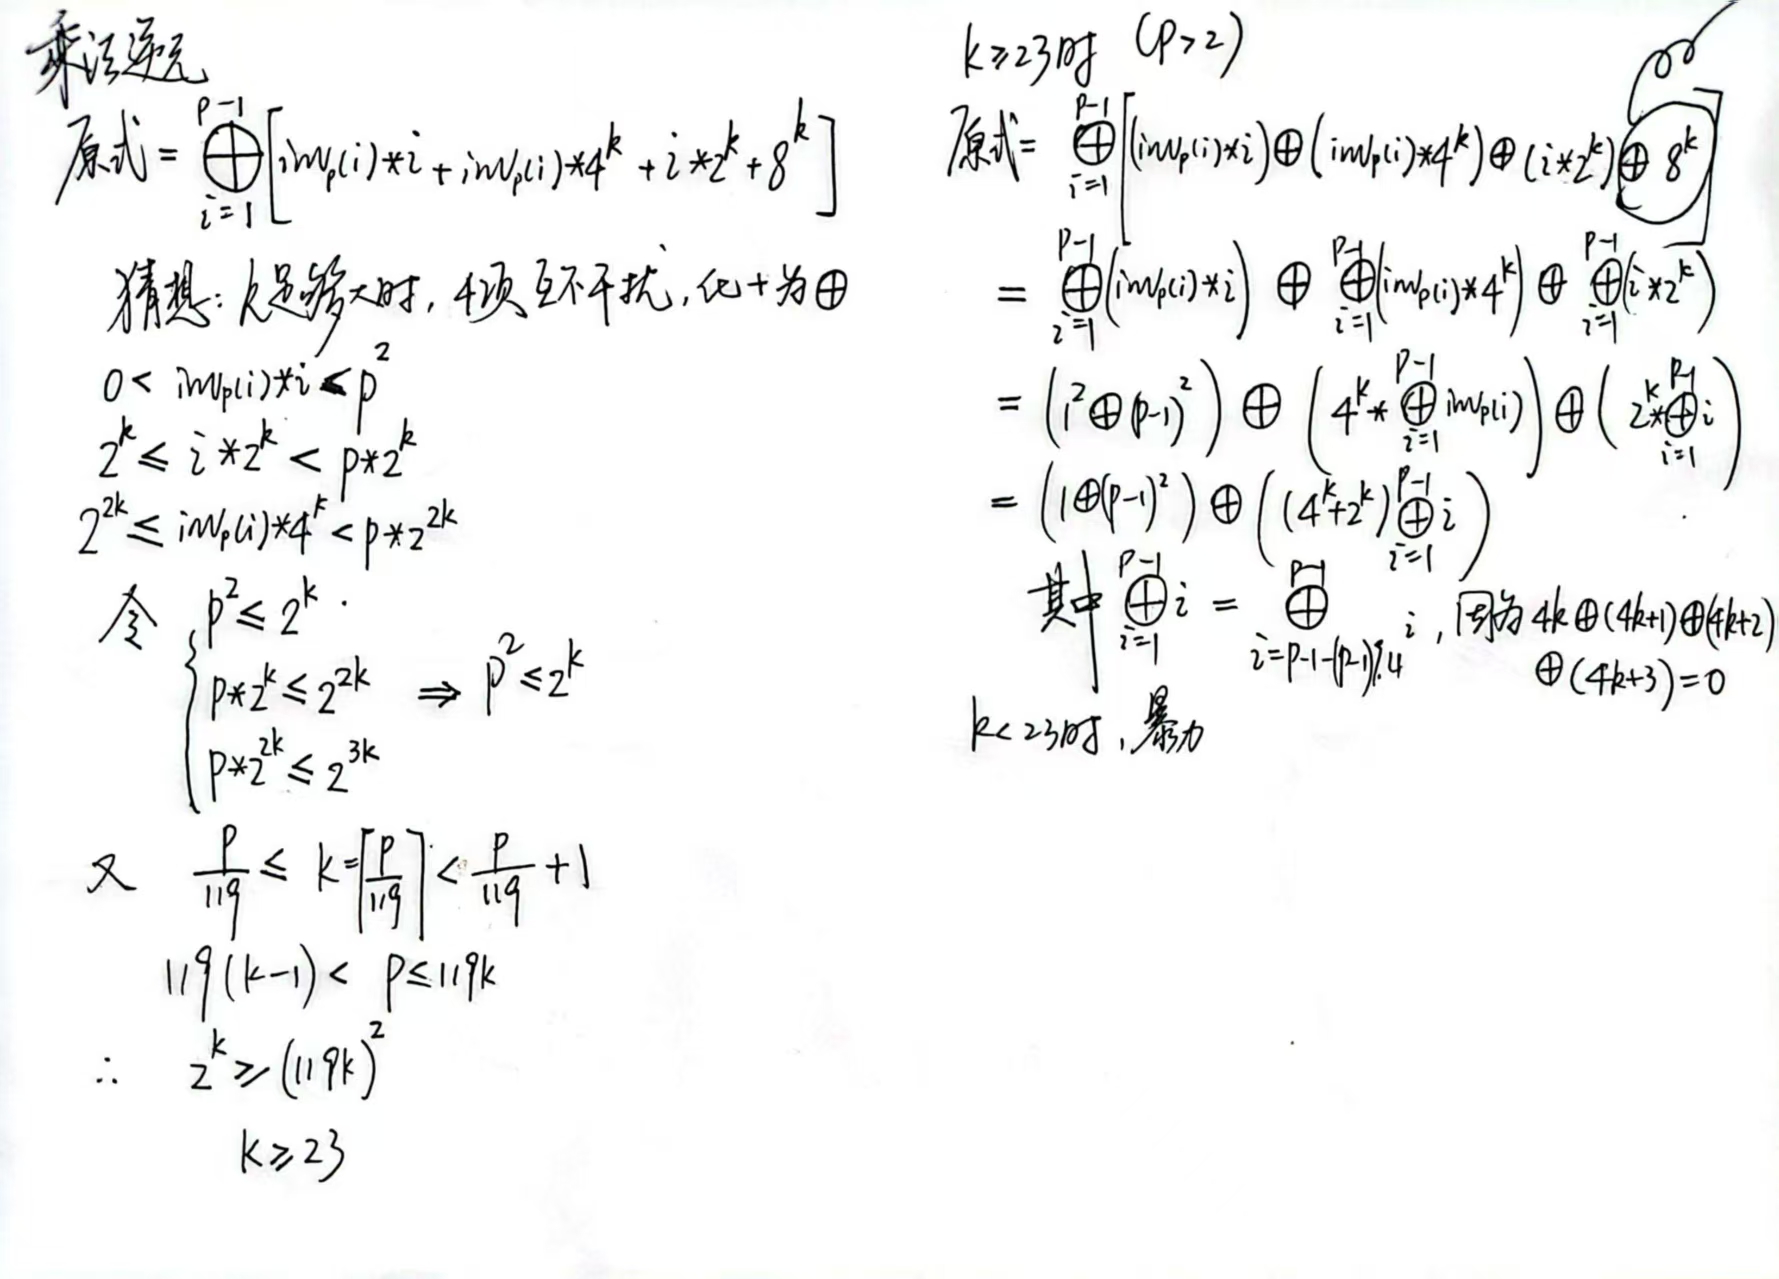 乘法逆元
原式 = ⊕_{i=1}^{p-1} [inv_p(i)*i + inv_p(i)*4^k + i*2^k + 8^k]
猜想: k足够大时, 4项互不干扰, 化+为⊕
0 < inv_p(i)*i < p^2
2^k ≤ i*2^k < p*2^k
2^{2k} ≤ inv_p(i)*4^k < p*2^{2k}
令 { p^2 ≤ 2^k .
p*2^k ≤ 2^{2k} ⇒ p^2 ≤ 2^k
p*2^{2k} ≤ 2^{3k}
又 p/119 ≤ k = ⌈p/119⌉ < p/119 + 1
119(k-1) < p ≤ 119k
∴ 2^k ≥ (119k)^2
k ≥ 23
k ≥ 23时 (p>2)
原式 = ⊕_{i=1}^{p-1} [(inv_p(i)*i) ⊕ (inv_p(i)*4^k) ⊕ (i*2^k) ⊕ 8^k]
= ⊕_{i=1}^{p-1} (inv_p(i)*i) ⊕ ⊕_{i=1}^{p-1} (inv_p(i)*4^k) ⊕ ⊕_{i=1}^{p-1} (i*2^k)
= (1^2 ⊕ (p-1)^2) ⊕ (4^k * ⊕_{i=1}^{p-1} inv_p(i)) ⊕ (2^k * ⊕_{i=1}^{p-1} i)
= (1⊕(p-1)^2) ⊕ ((4^k+2^k) ⊕_{i=1}^{p-1} i)
其中 ⊕_{i=1}^{p-1} i = ⊕_{i=p-1-(p-1)%4}^{p-1} i, 因为 4k⊕(4k+1)⊕(4k+2)
⊕(4k+3)=0
k < 23时, 暴力